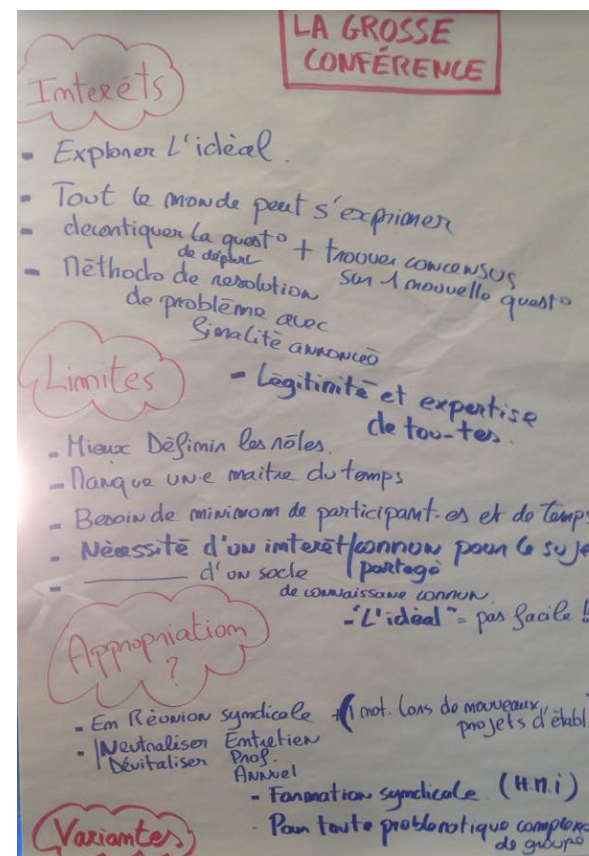 LA GROSSE
CONFÉRENCE
Interêts
- Explorer L'idéal.
- Tout le monde peut s'exprimer
- decortiquer la quest° + trouver concensus
de départ sur 1 nouvelle quest°
- Méthodo de résolution
de problème avec
finalité annoncée
- Légitimité et expertise
de tou-tes.
Limites
- Mieux Définir les rôles.
- Manque un·e maitre du temps
- Besoin de minimum de participant-es et de temps
- Nécessité d'un interêt/connon pour le suje
partagé
- ______ d'un socle
de connaissance connon.
- "L'idéal" = pas facile !!
Appropriation
?
- En Réunion syndicale + (1 not. Lors de nouveaux
projets d'établ
- Neutraliser Entretien
Dévitaliser Prof.
Annuel
- Formation syndicale. (H.M.i)
- Pour toute problématique complexe
de groupe
Variantes